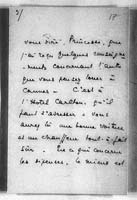 2/
18
vous dire, Princesse, que
j'ai reçu quelques renseigne-
-ments concernant l'auto
que vous pensez louer à
Cannes — C'est à
l'Hotel Carlton, qu'il
faut s'adresser — vous
aurez là une bonne voiture
et un chauffeur tout à fait
sûr. — En ce qui concerne
les dépenses, le mieux est